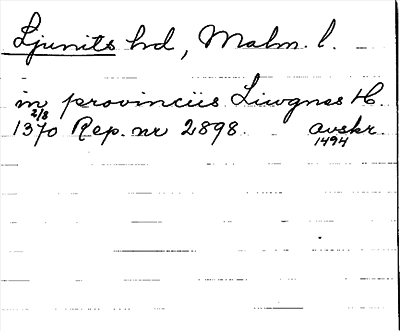 Ljunits hd, Malm. l.
in provinciis Liwgnes H.
2/8
1370 Rep. nr 2898. avskr.
1494